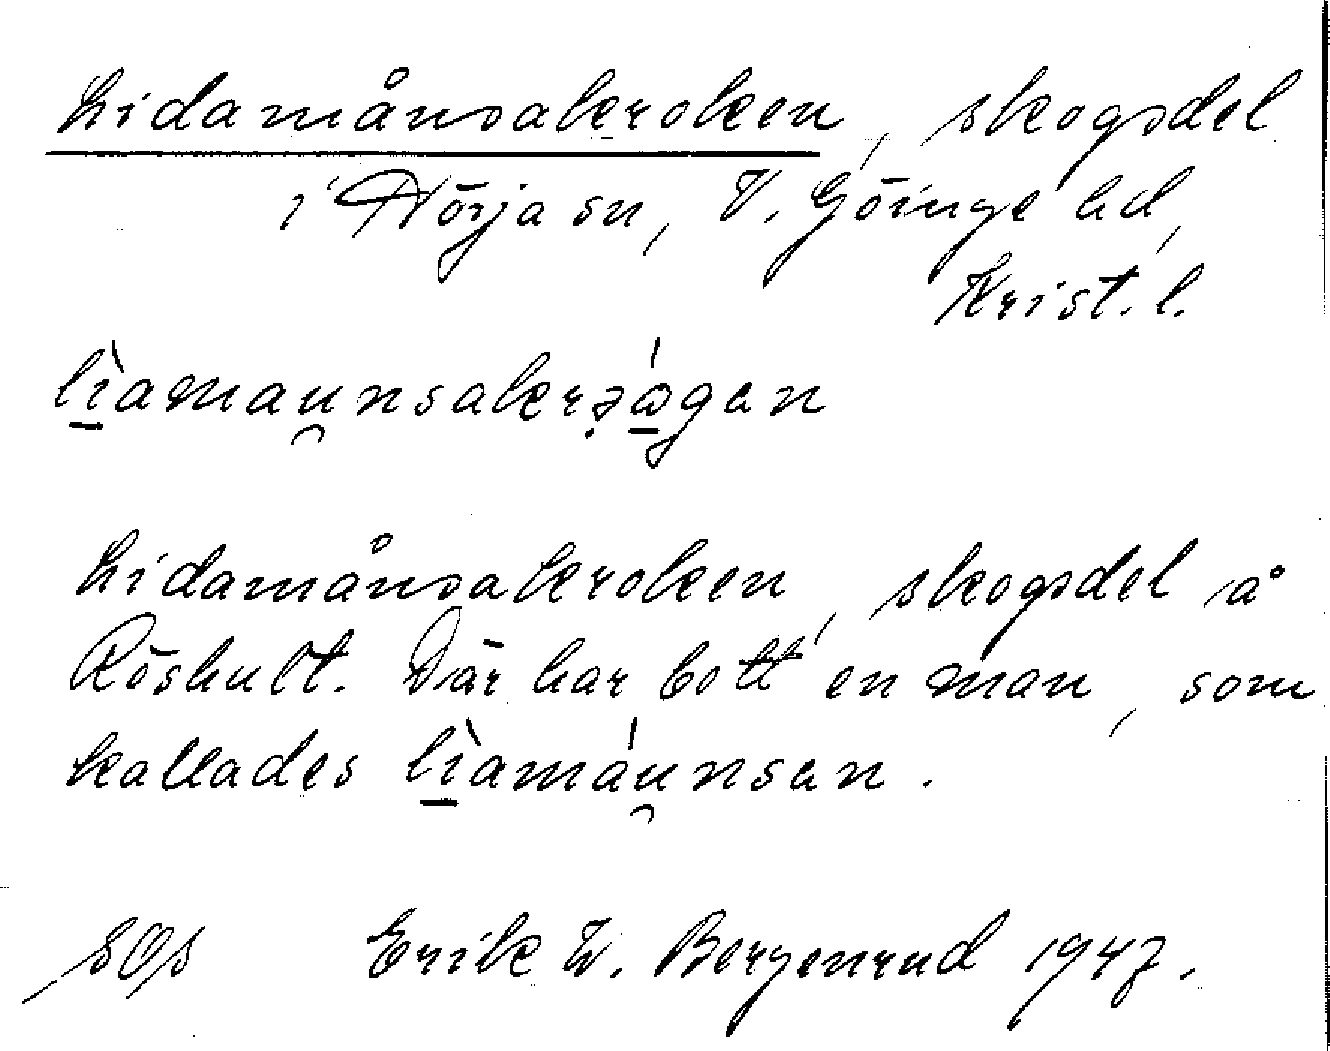 Lidamånsakroken, skogsdel
i Nörja sn, V. Göinge hd,
Krist. l.
lìamaunsakrǝ́gan
Lidamånsakroken, skogsdel å
Röshult. Där har bott en man, som
kallades lìamáunsan.
Erik W. Bergenrud 1947.